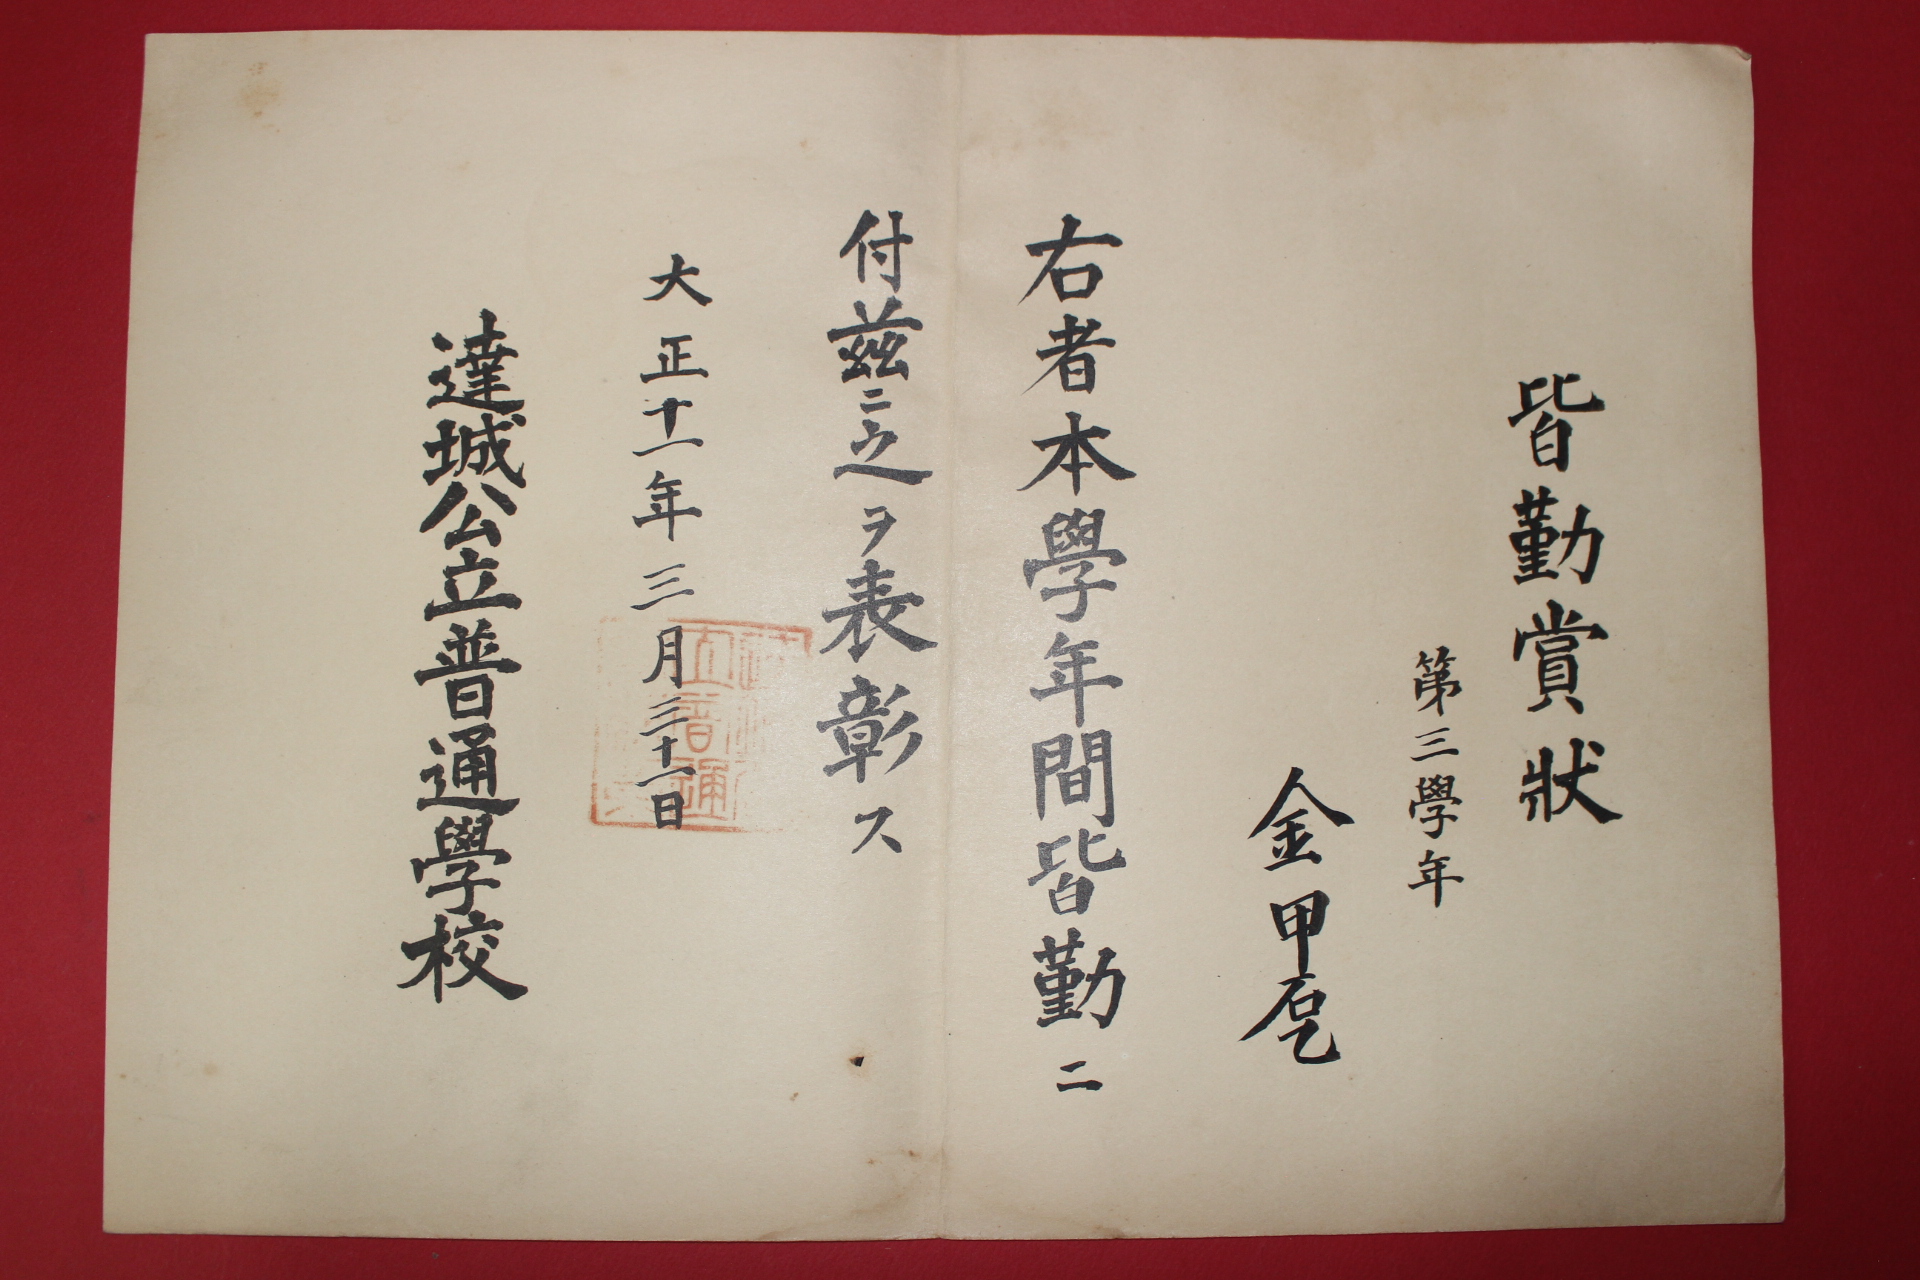 皆勤賞狀
第三學年
金甲乭
右者本學年間皆勤ニ
付茲ニ之ヲ表彰ス
大正十一年三月三十一日
達城公立普通學校
立普通